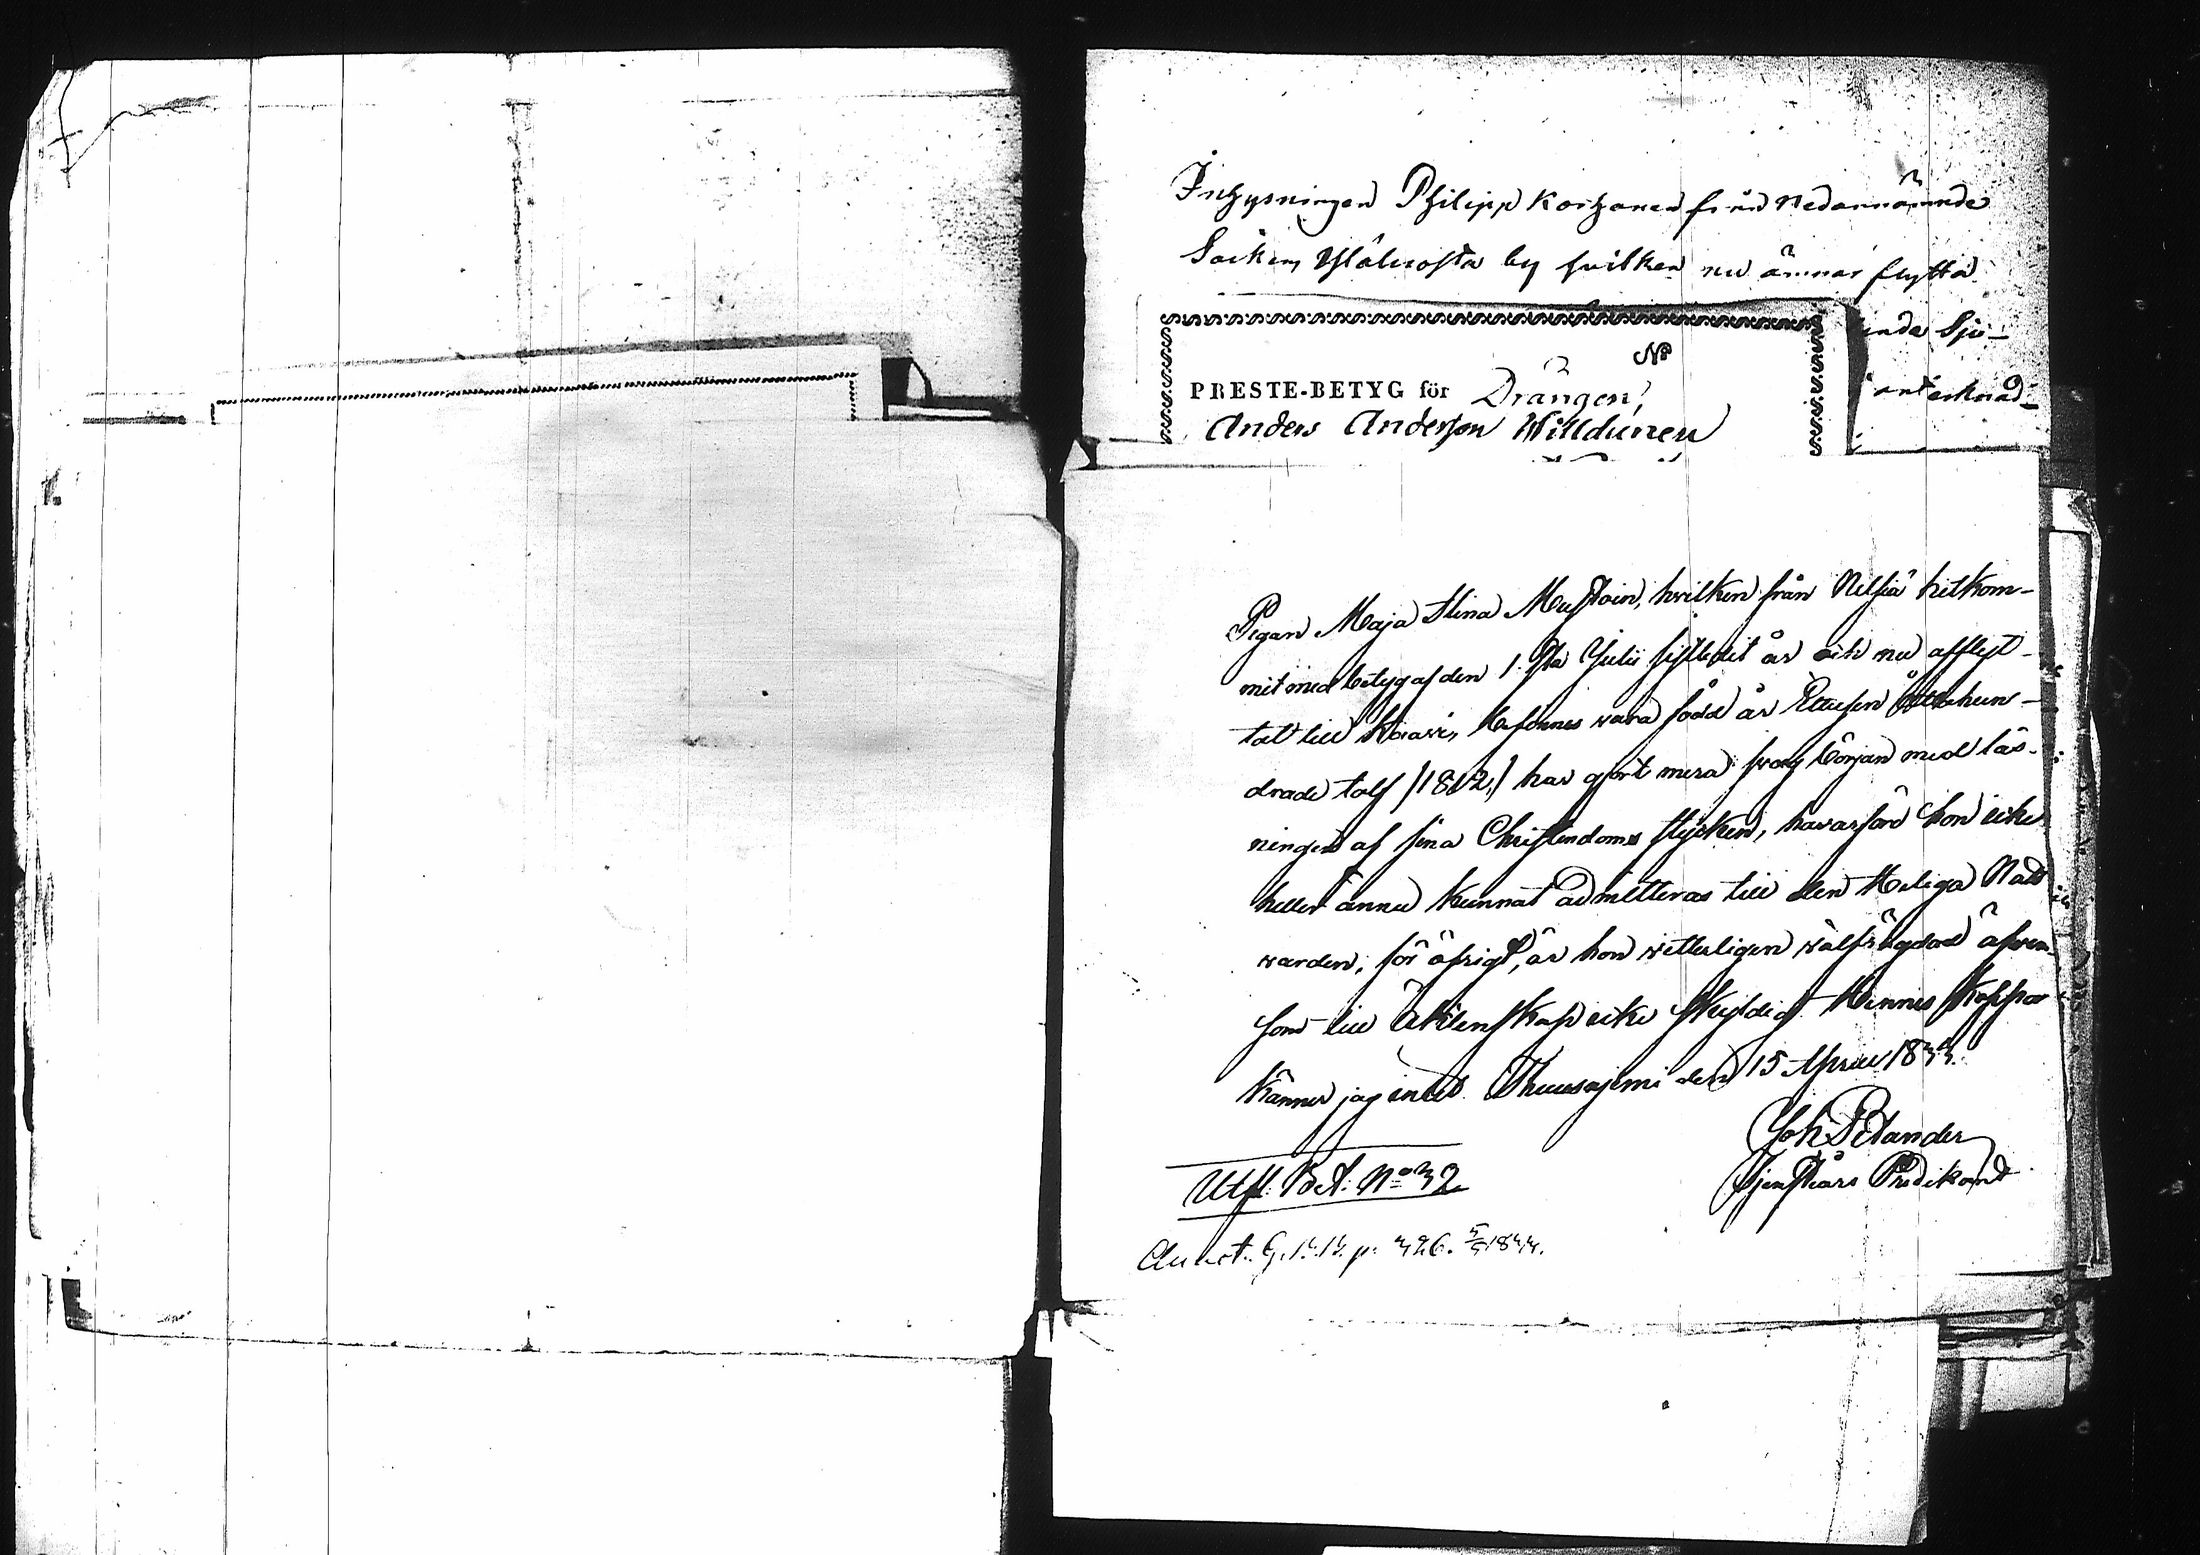 Inhysningen Philipp Korhonen från nedannämnde
Socken, by hvilken nu ämnar flytta
unde Sju-
antecknad-
No
PRESTE-BETYG för Drängen,
Anders Anderson Willdunen
Pigan Maja Stina Mustoin, hvilken från Nilsiä hitkom-
mit med betyg af den 1sta Julii sistledit år och nu afflyt-
tat till Kaavi, befinnes vara född år Ettusen Ottahun-
drade tolf /1812,/ har gjort mera svag början med läs-
ningen af sina Christendoms stycken, hvarföre hon icke
heller ännu kunnat admitteras till den Heliga Natt
varden, för öfrigt, är hon vetterligen välfrägdad äfven-
som till Äktenskap icke skyldig. Hennes Koppor
känner jag intet. Thuusajerwi den 15 April 1844.
Joh Pelander
Tjenstgörs Predikant
Utfl. Bet. No 42
Annot. G. 14.14. p. 426. 5/5 1844.